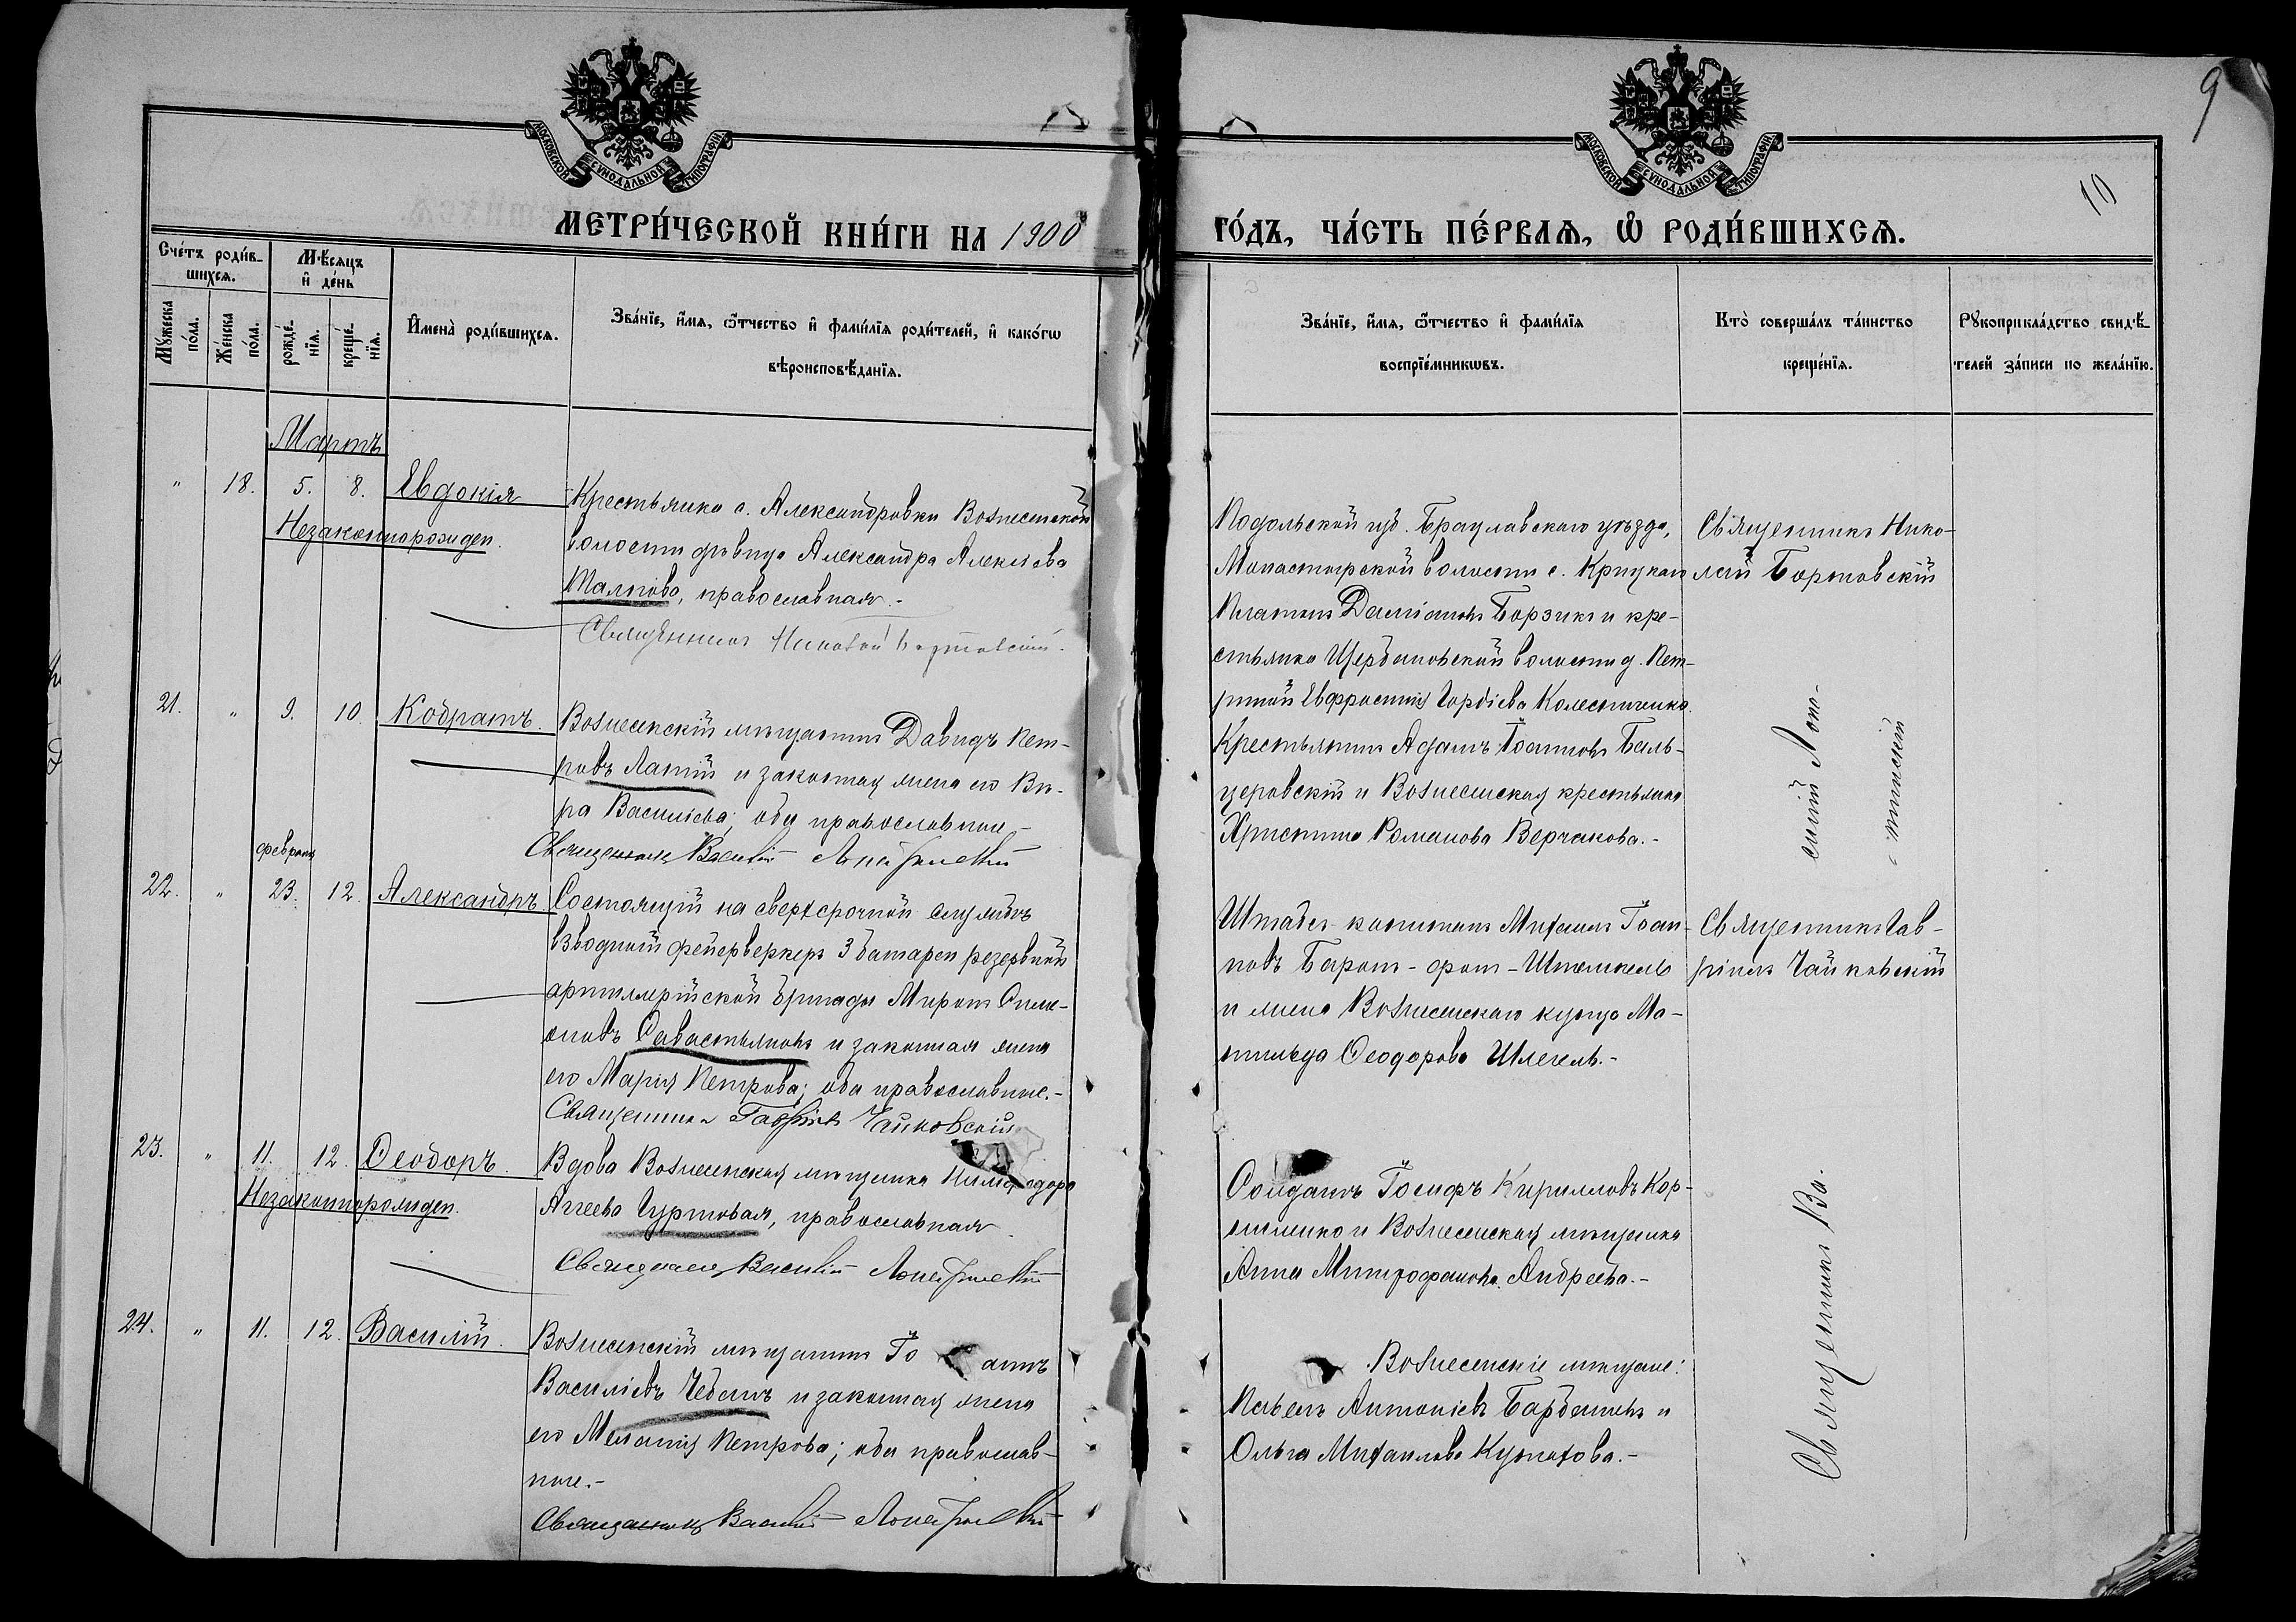 9
10
МОСКОВСКОЙ СѴНОДАЛЬНОЙ ТИПОГРАФІИ
МОСКОВСКОЙ СѴНОДАЛЬНОЙ ТИПОГРАФІИ
МЕТРИ́ЧЕСКОЙ КНИ́ГИ НА 1900
ГО́ДЪ, ЧА́СТЬ ПЕ́РВАѦ, Ѽ РОДИ́ВШИХСѦ.
Сче́тъ роди́в-
шихсѧ.
Мꙋ́жеска
по́ла.
Же́нска
по́ла.
Мѣ́сѧцъ
и҆ де́нь
рожде́-
нїѧ.
креще́-
нїѧ.
И҆мена̀ роди́вшихсѧ.
Зва́нїе, и҆́мѧ, ѻ҆́тчество и҆ фами́лїѧ роди́телей, и҆ како́гѡ
вѣроисповѣ́данїѧ.
Зва́нїе, и҆́мѧ, ѻ҆́тчество и҆ фами́лїѧ
воспрїе́мникѡвъ.
Кто̀ соверша́лъ та́инство
креще́нїѧ.
Рꙋкоприкла́дство свидѣ́-
телей за́писи по жела́нїю.
Мартъ
" 18. 5. 8. Евдокія
Незаконнорожден.
Крестьянка с. Александровки Вознесенской
волости дѣвица Александра Алексіева
Талпова, православная.-
Священникъ Николай Бортовскій.
Подольской губ. Брацлавскаго уѣзда,
Монастырской волости с. Крицкаго
Платонъ Даміановъ Борзикъ и кре-
стьянка Щербановской волости д. Пет-
риной Евфросинія Гордіева Колесниченко.
Священникъ Нико-
лай Бортовскій
21. " 9. 10. Кодратъ.
Вознесенскій мѣщанинъ Давидъ Пет-
ровъ Латій и законная жена его Вѣ-
ра Василіева, оба православные.-
Священникъ Василій Лопатинскій
Крестьянинъ Адамъ Іоанновъ Баль-
церовскій и Вознесенская крестьянка
Христина Романова Верчакова.-
февраля
22. " 23. 12. Александръ
Состоящій на сверхсрочной службѣ
взводный фейерверкеръ 3 батареи резервной
артиллерійской бригады Миронъ Симе-
оновъ Савастьяновъ и законная жена
его Марія Петрова; оба православные.-
Священникъ Гавріилъ Чайковскій
Штабсъ-капитанъ Михаилъ Іоан-
новъ Баронъ-фон-Штемпель
и жена Вознесенскаго купца Ма-
тильда Ѳеодорова Шлегель.-
Священникъ Гав-
ріилъ Чайковскій
23. " 11. 12. Ѳеодоръ.
Незаконнорожден.
Вдова Вознесенская мѣщанка
Аггеева Гуртовая, православная.
Священникъ Василій Лопатинскій
Солдатъ Іосифъ Кирилловъ Кор-
ниенко и Вознесенская мѣщанка
Анна Митрофанова Андреева.-
24. " 11. 12. Василій.
Вознесенскій мѣщанинъ Іо аннъ
Василіевъ Чебанъ и законная жена
его Меланія Петрова; оба православ-
ные.-
Священникъ Василій Лопатинскій
Вознесенскіе мѣщане:
Павелъ Антоніевъ Барбановъ и
Ольга Михаилова Кузнецова.-
Священникъ Ва-
силій Лопа-
-тинскій